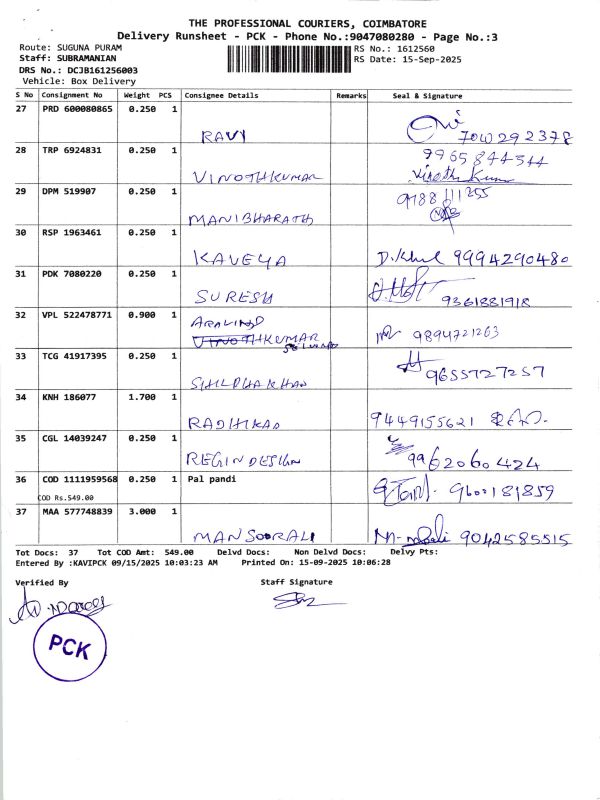 THE PROFESSIONAL COURIERS, COIMBATORE
Delivery Runsheet - PCK - Phone No.:9047080280 - Page No.:3
Route: SUGUNA PURAM RS No.: 1612560
Staff: SUBRAMANIAN RS Date: 15-Sep-2025
DRS No.: DCJB161256003
Vehicle: Box Delivery
S No Consignment No Weight PCS Consignee Details Remarks Seal & Signature
27 PRD 600080865 0.250 1
RAVI
28 TRP 6924831 0.250 1 9965844344
VINOTHKUMAR Vinoth Kumar
29 DPM 519907 0.250 1 9788111255
MANIBHARATH
30 RSP 1963461 0.250 1
KAVEYA 9994290480
31 PDK 7080220 0.250 1
SURESH 9361881918
32 VPL 522478771 0.900 1 ARAVIND
VINOTHKUMAR 9894721263
33 TCG 41917395 0.250 1
9655727257
34 KNH 186077 1.700 1
RADHIKAD 9449155621
35 CGL 14039247 0.250 1
REGIN DESIGN 9962060424
36 COD 1111959568 0.250 1 Pal pandi
COD Rs.549.00 9600181859
37 MAA 577748839 3.000 1
MANSOORALI 9042585515
Tot Docs: 37 Tot COD Amt: 549.00 Delvd Docs: Non Delvd Docs: Delvy Pts:
Entered By :KAVIPCK 09/15/2025 10:03:23 AM Printed On: 15-09-2025 10:06:28
Verified By Staff Signature
PCK